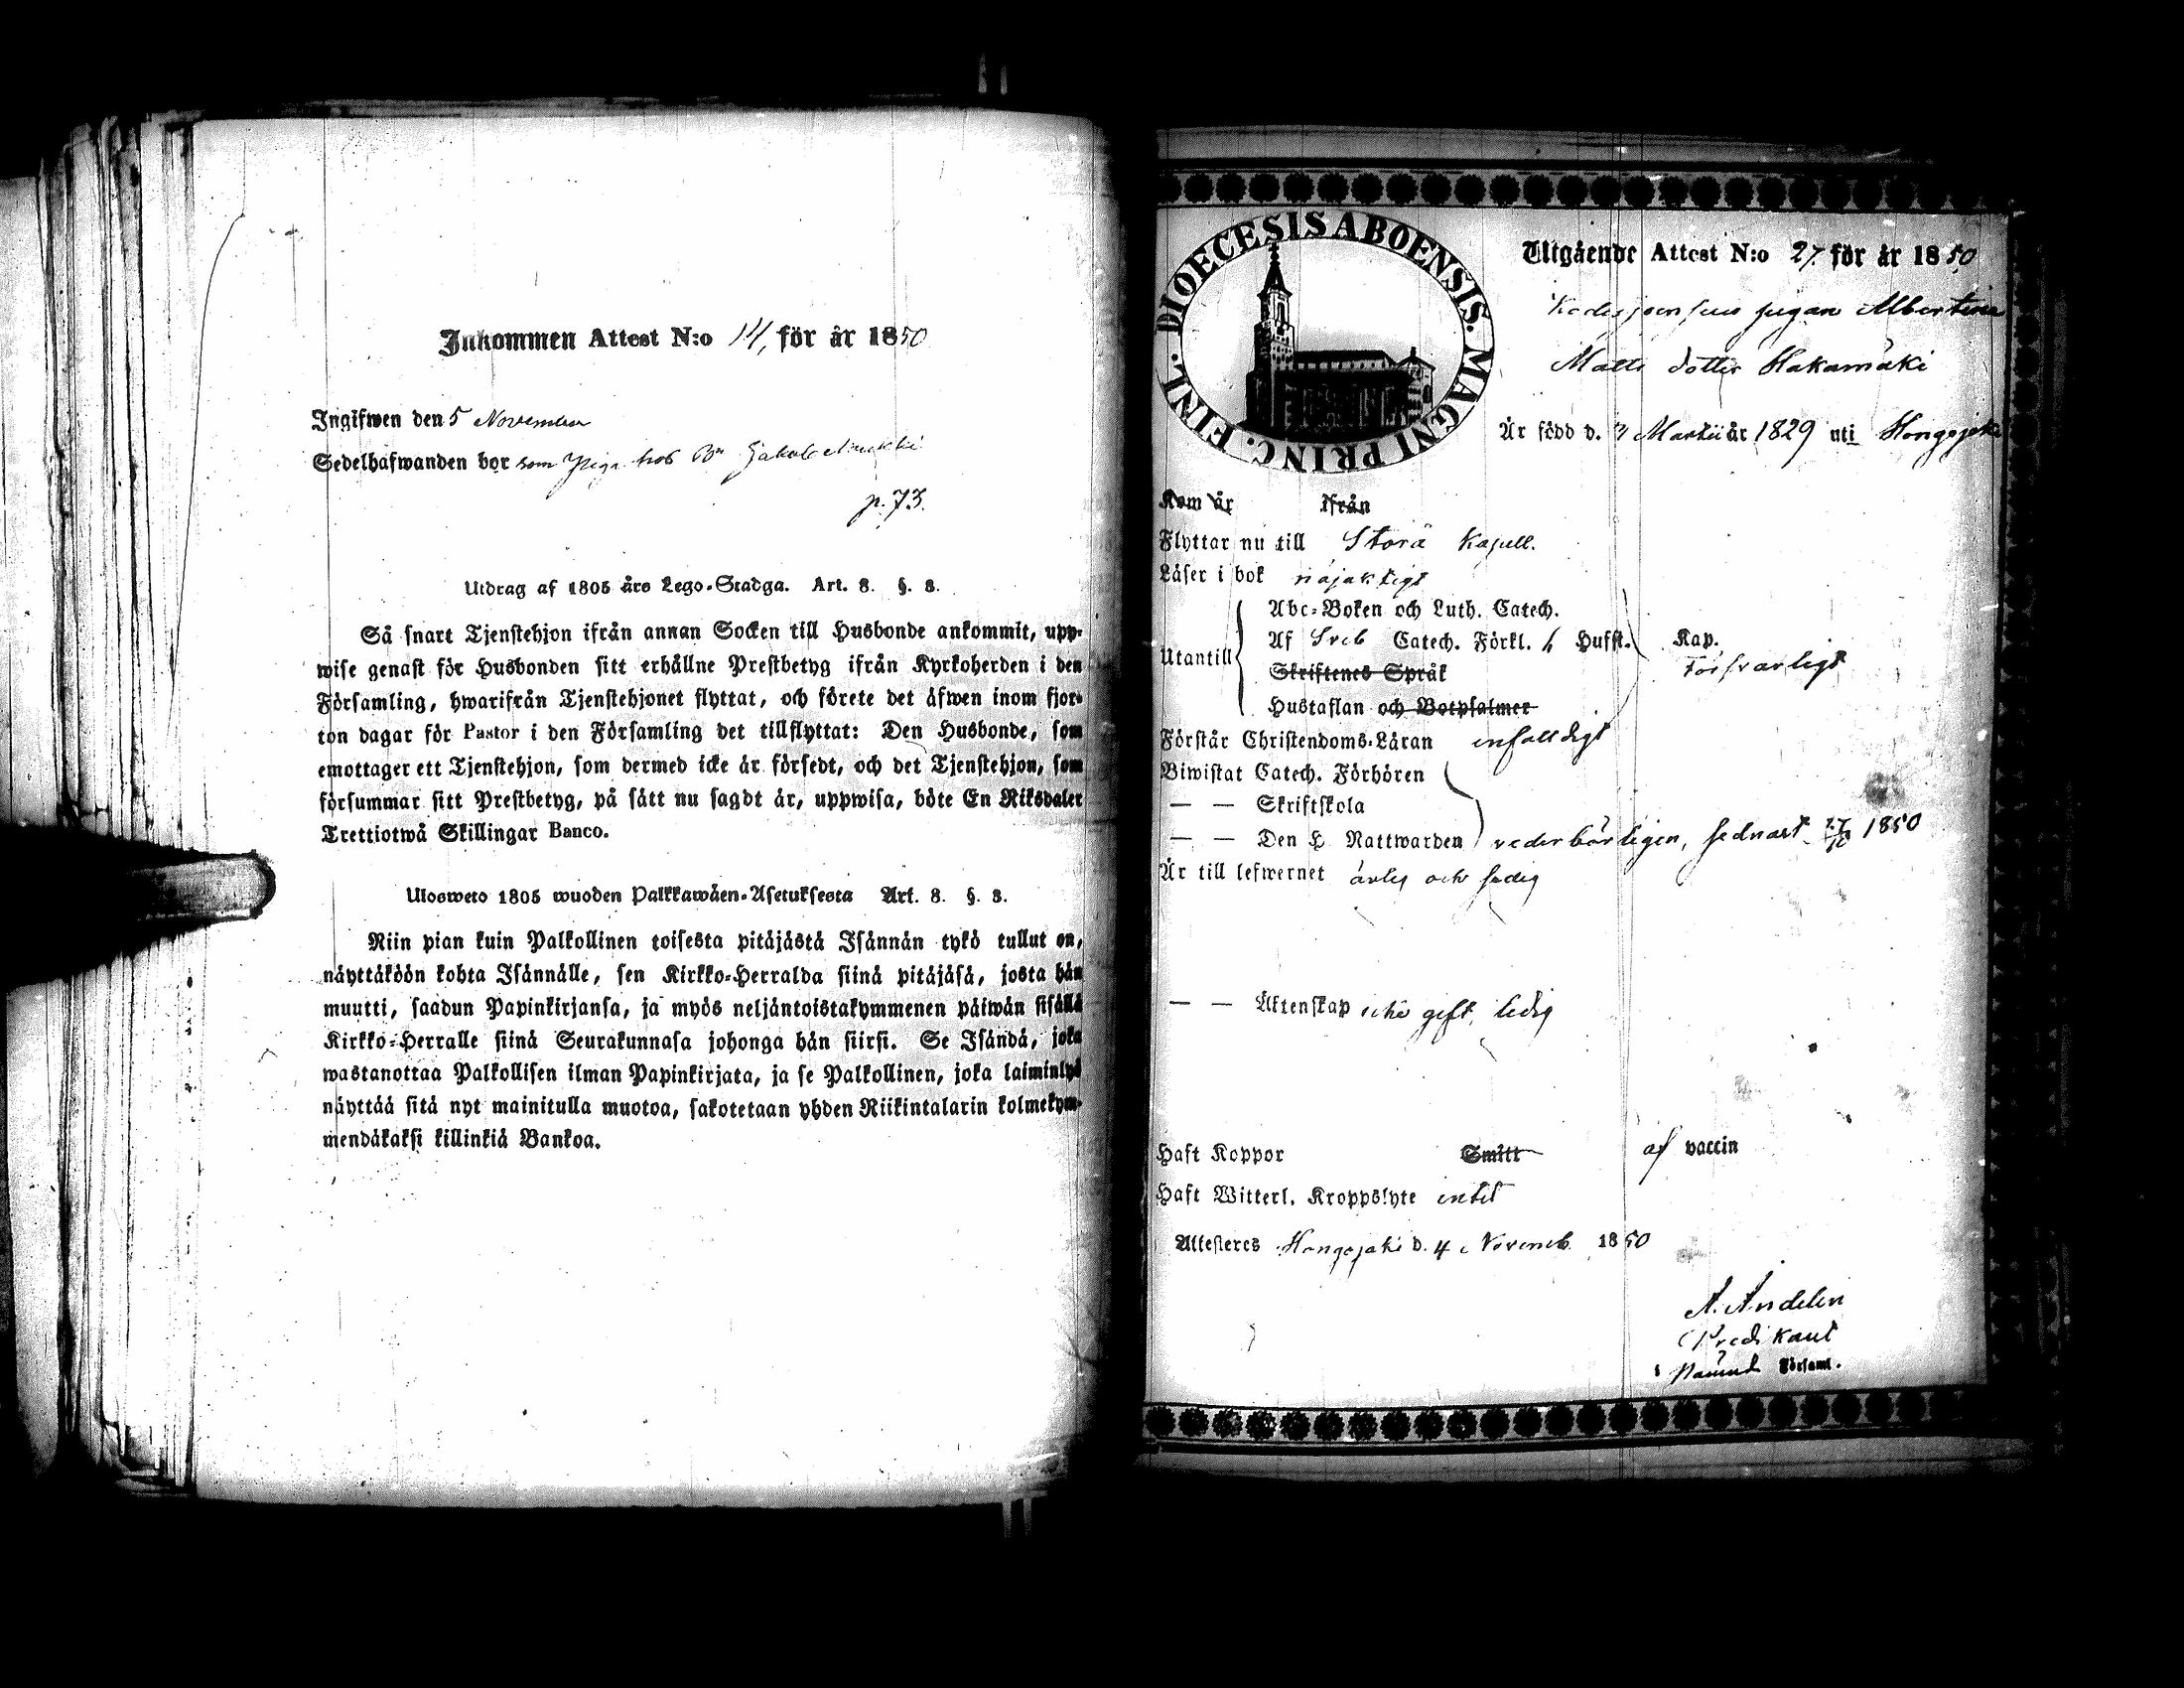 Inkommen Attest N:o 14, för år 1850
Ingifwen den 5 November
Sedelhafwanden bor som Piga hos Bn Jakob
p. 73.
Utdrag af 1805 års Lego-Stadga. Art. 8. §. 8.
Så snart Tjenstehjon ifrån annan Socken till Husbonde ankommit, upp-
wise genast för Husbonden sitt erhållne Prestbetyg ifrån Kyrkoherden i den
Församling, hwarifrån Tjenstehjonet flyttat, och förete det äfwen inom fjor-
ton dagar för Pastor i den Församling det tillflyttat: Den Husbonde, som
emottager ett Tjenstehjon, som dermed icke är försedt, och det Tjenstehjon, som
försummar sitt Prestbetyg, på sätt nu sagdt är, uppwisa, böte En Riksdaler
Trettiotwå Skillingar Banco.
Ulosweto 1805 wuoden Palkkawäen-Asetuksesta Art. 8. §. 8.
Niin pian kuin Palkollinen toisesta pitäjästä Isännän tykö tullut on,
näyttäköön kohta Isännälle, sen Kirkko-Herralda siinä pitäjäsä, josta hän
muutti, saadun Papinkirjansa, ja myös neljäntoistakymmenen päiwän sisällä
Kirkko-Herralle siinä Seurakunnasa johonga hän siirsi. Se Isändä, joka
wastanottaa Palkollisen ilman Papinkirjata, ja se Palkollinen, joka laiminlyö
näyttää sitä nyt mainitulla muotoa, sakotetaan yhden Riikintalarin kolmekym-
mendäkaksi killinkiä Bankoa.
DIOECESIS ABOENSIS. MAGNI PRINC. FINL.
Utgående Attest N:o 27 för år 1850
pigan Albertina
Matts dotter Hakamäki
Är född d. 7 Martii år 1829 uti Hongojoki
Kom år ifrån
Flyttar nu till Storå Kapell.
Läser i bok nöjaktigt
Abc-Boken och Luth. Catech.
Utantill
Af Sveb Catech. Förkl. h Hufst. Kap.
Skriftenes Språk
försvarligt
Hustaflan och Botpsalmer
Förstår Christendoms-Läran enfaldigt
Biwistat Catech. Förhören
— — Skriftskola
— — Den H. Nattwarden vederbörligen, sednast 1850
Är till lefwernet ärlig och sedig
— — Äktenskap icke gift, ledig
Haft Koppor Smitt af vaccin
Haft Witterl. Kroppslyte intet
Attesteres Hongojoki d. 4 Novemb. 1850
A. Andelin
Predikant
i Nämnd Församl.